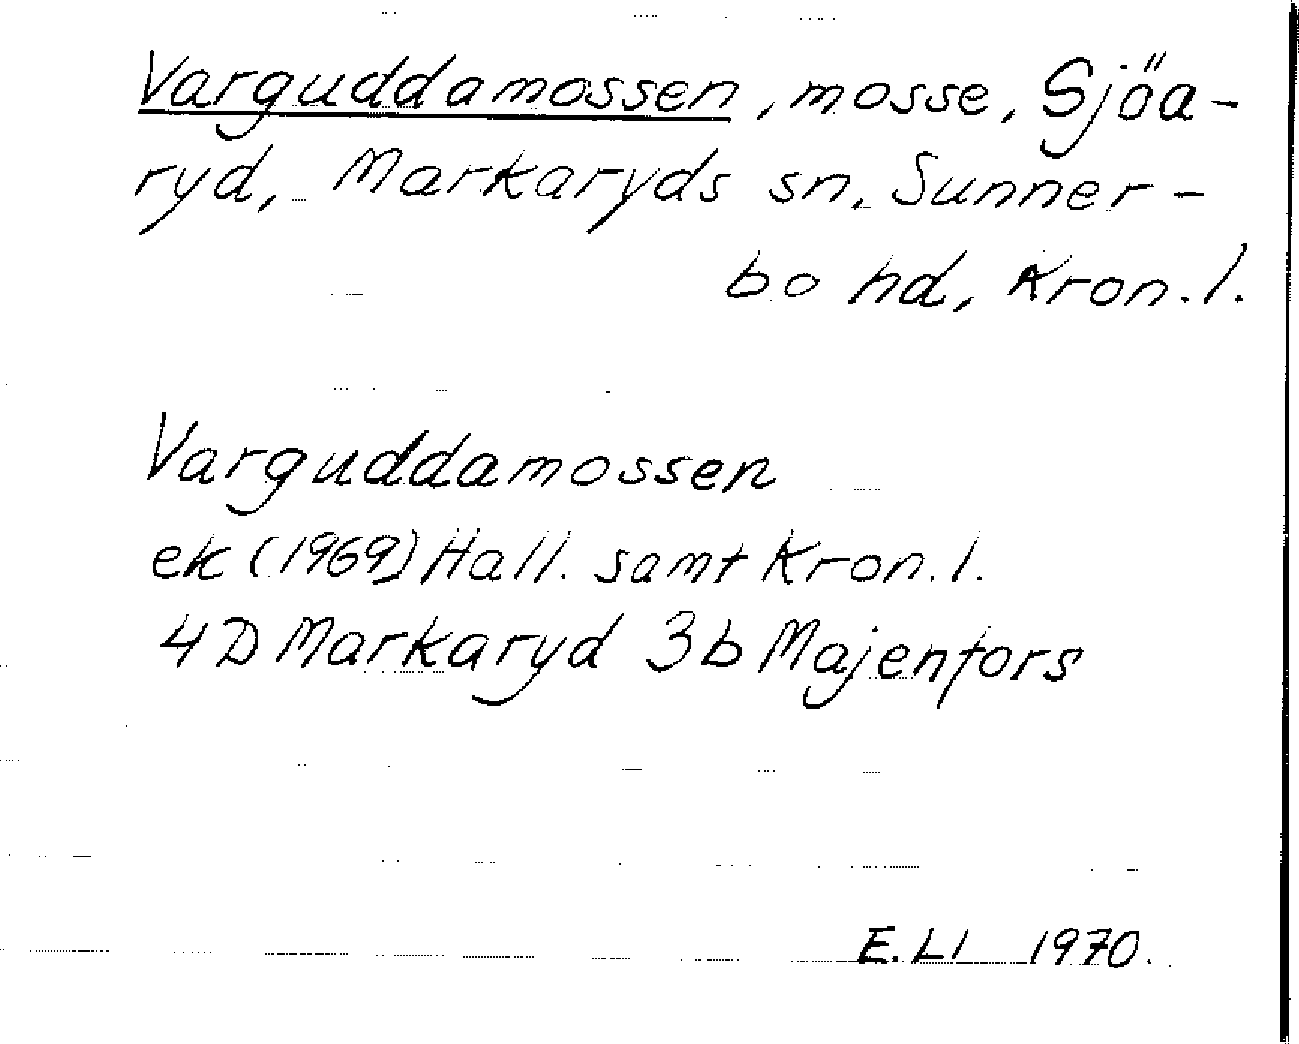 Varguddamossen, mosse, Sjöa-
ryd, Markaryds sn, Sunner-
bo hd, Kron. l.
Varguddamossen
ek (1969) Hall. samt Kron. l.
4D Markaryd 3b Majenfors
E. LI 1970.